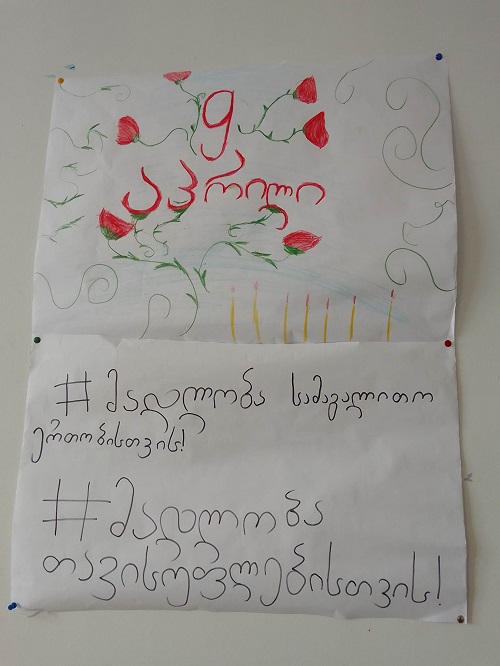 9
აპრილი
#მადლობა სამაგალითო
ერთობისთვის!
#მადლობა
თავისუფლებისთვის!